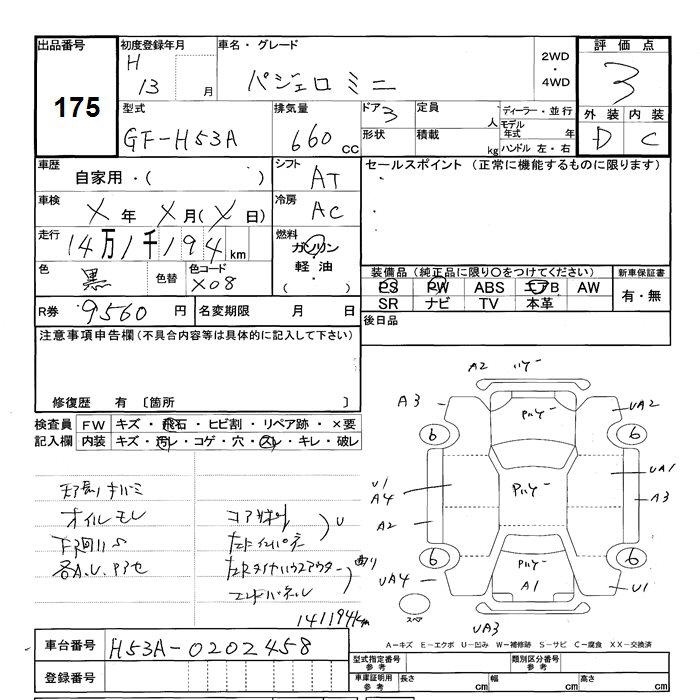 出品番号 初度登録年月 車名・グレード 2WD・4WD 評価点
175
H 13 月 パジェロミニ 3
型式 排気量 ドア 3 定員 人 ディーラー・並行 外装 内装
GF-H53A 660 cc 形状 積載 kg モデル年式 年 D C
ハンドル 左・右
車歴 自家用・( ) シフト AT セールスポイント (正常に機能するものに限ります)
車検 X 年 X 月 (X 日) 冷房 AC
走行 14万1千194 km 燃料 ガソリン
軽油
( ・ )
色 黒 色替 色コード X08
装備品 (純正品に限り○をつけてください) 新車保証書
PS PW ABS エアB AW 有・無
SR ナビ TV 本革
R券 9560 円 名変期限 月 日 後日品
注意事項申告欄 (不具合内容等は具体的に記入して下さい)
修復歴 有 〔箇所 〕
検査員 FW キズ・飛石・ヒビ割・リペア跡・×要
記入欄 内装 キズ・汚レ・コゲ・穴・スレ・キレ・破レ
オイルモレ
下廻りS
コア
U
曲り
141194km
A2
A3
UA2
6
6
U1
A4
UA1
A3
A2
6
6
UA4
A1
U1
スペア
UA3
A=キズ E=エクボ U=凹み W=補修跡 S=サビ C=腐食 XX=交換済
車台番号 H53A-0202458
登録番号
型式指定番号 参考 類別区分番号 参考
車庫証明用 参考 長さ cm 幅 cm 高さ cm